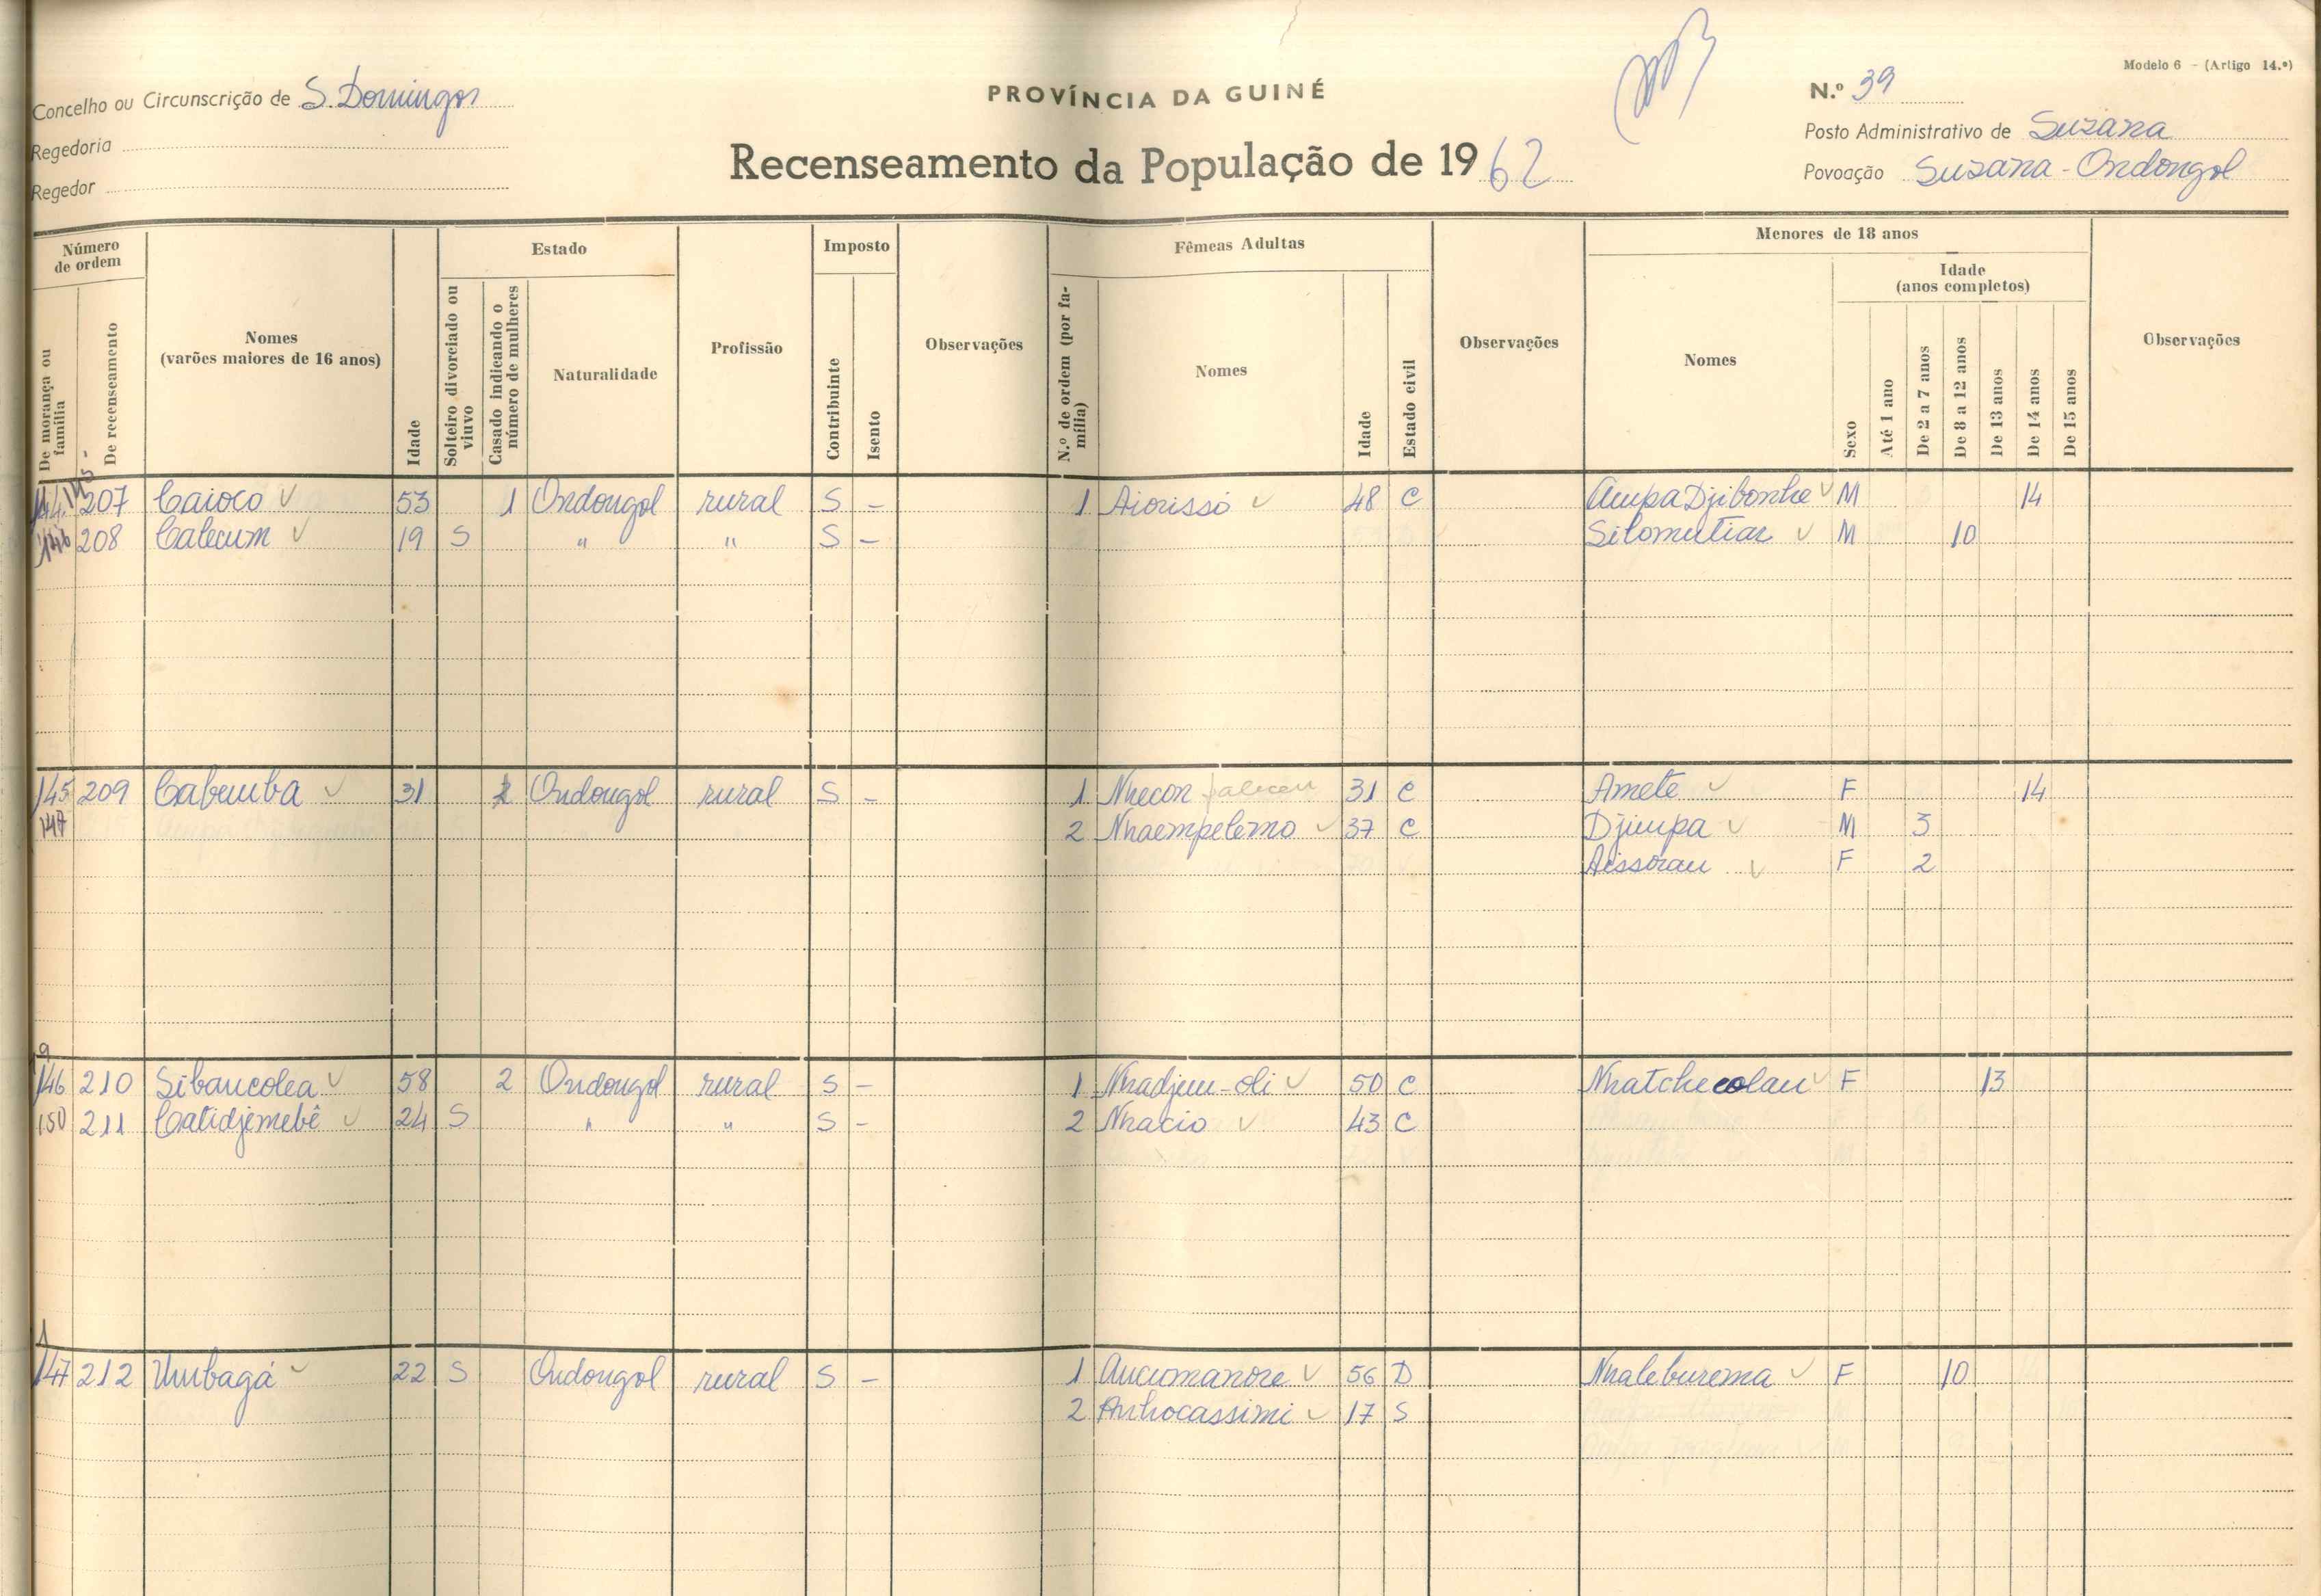 Modelo 6 – (Artigo 14.º)
Concelho ou Circunscrição de S. Domingos
PROVÍNCIA DA GUINÉ
N.º 39
Regedoria
Posto Administrativo de Suzana
Recenseamento da População de 1962
Regedor
Povoação Suzana-Ondongol
Número de ordem
De morança ou família
De recenseamento
Nomes (varões maiores de 16 anos)
Idade
Estado
Solteiro divorciado ou viuvo
Casado indicando o número de mulheres
Naturalidade
Profissão
Imposto
Contribuinte
Isento
Observações
Fêmeas Adultas
N.º de ordem (por família)
Nomes
Idade
Estado civil
Observações
Menores de 18 anos
Nomes
Sexo
Idade (anos completos)
Até 1 ano
De 2 a 7 anos
De 8 a 12 anos
De 13 anos
De 14 anos
De 15 anos
Observações
207 Caioco 53 1 Ondongol rural S - 1 Aiorissó 48 C AmpaDjibonhe M 14
146 208 Calecum 19 S " " S - Silomutiar M 10
145 209 Cabemba 31 Ondongol rural S - 1 Nhecon faleceu 31 C Amete F 14
147 2 Nhaempelemo 37 C Djimpa M 3
Aissorau F 2
146 210 Sibancolea 58 2 Ondongol rural S - 1 Nhadjem-oli 50 C Nhatchecolau F 13
150 211 Catidjemebê 24 S " " S - 2 Nhacio 43 C
147 212 Umbagá 22 S Ondongol rural S - 1 Aucumanore 56 D Nhaleburema F 10
2 Anhocassimi 17 S